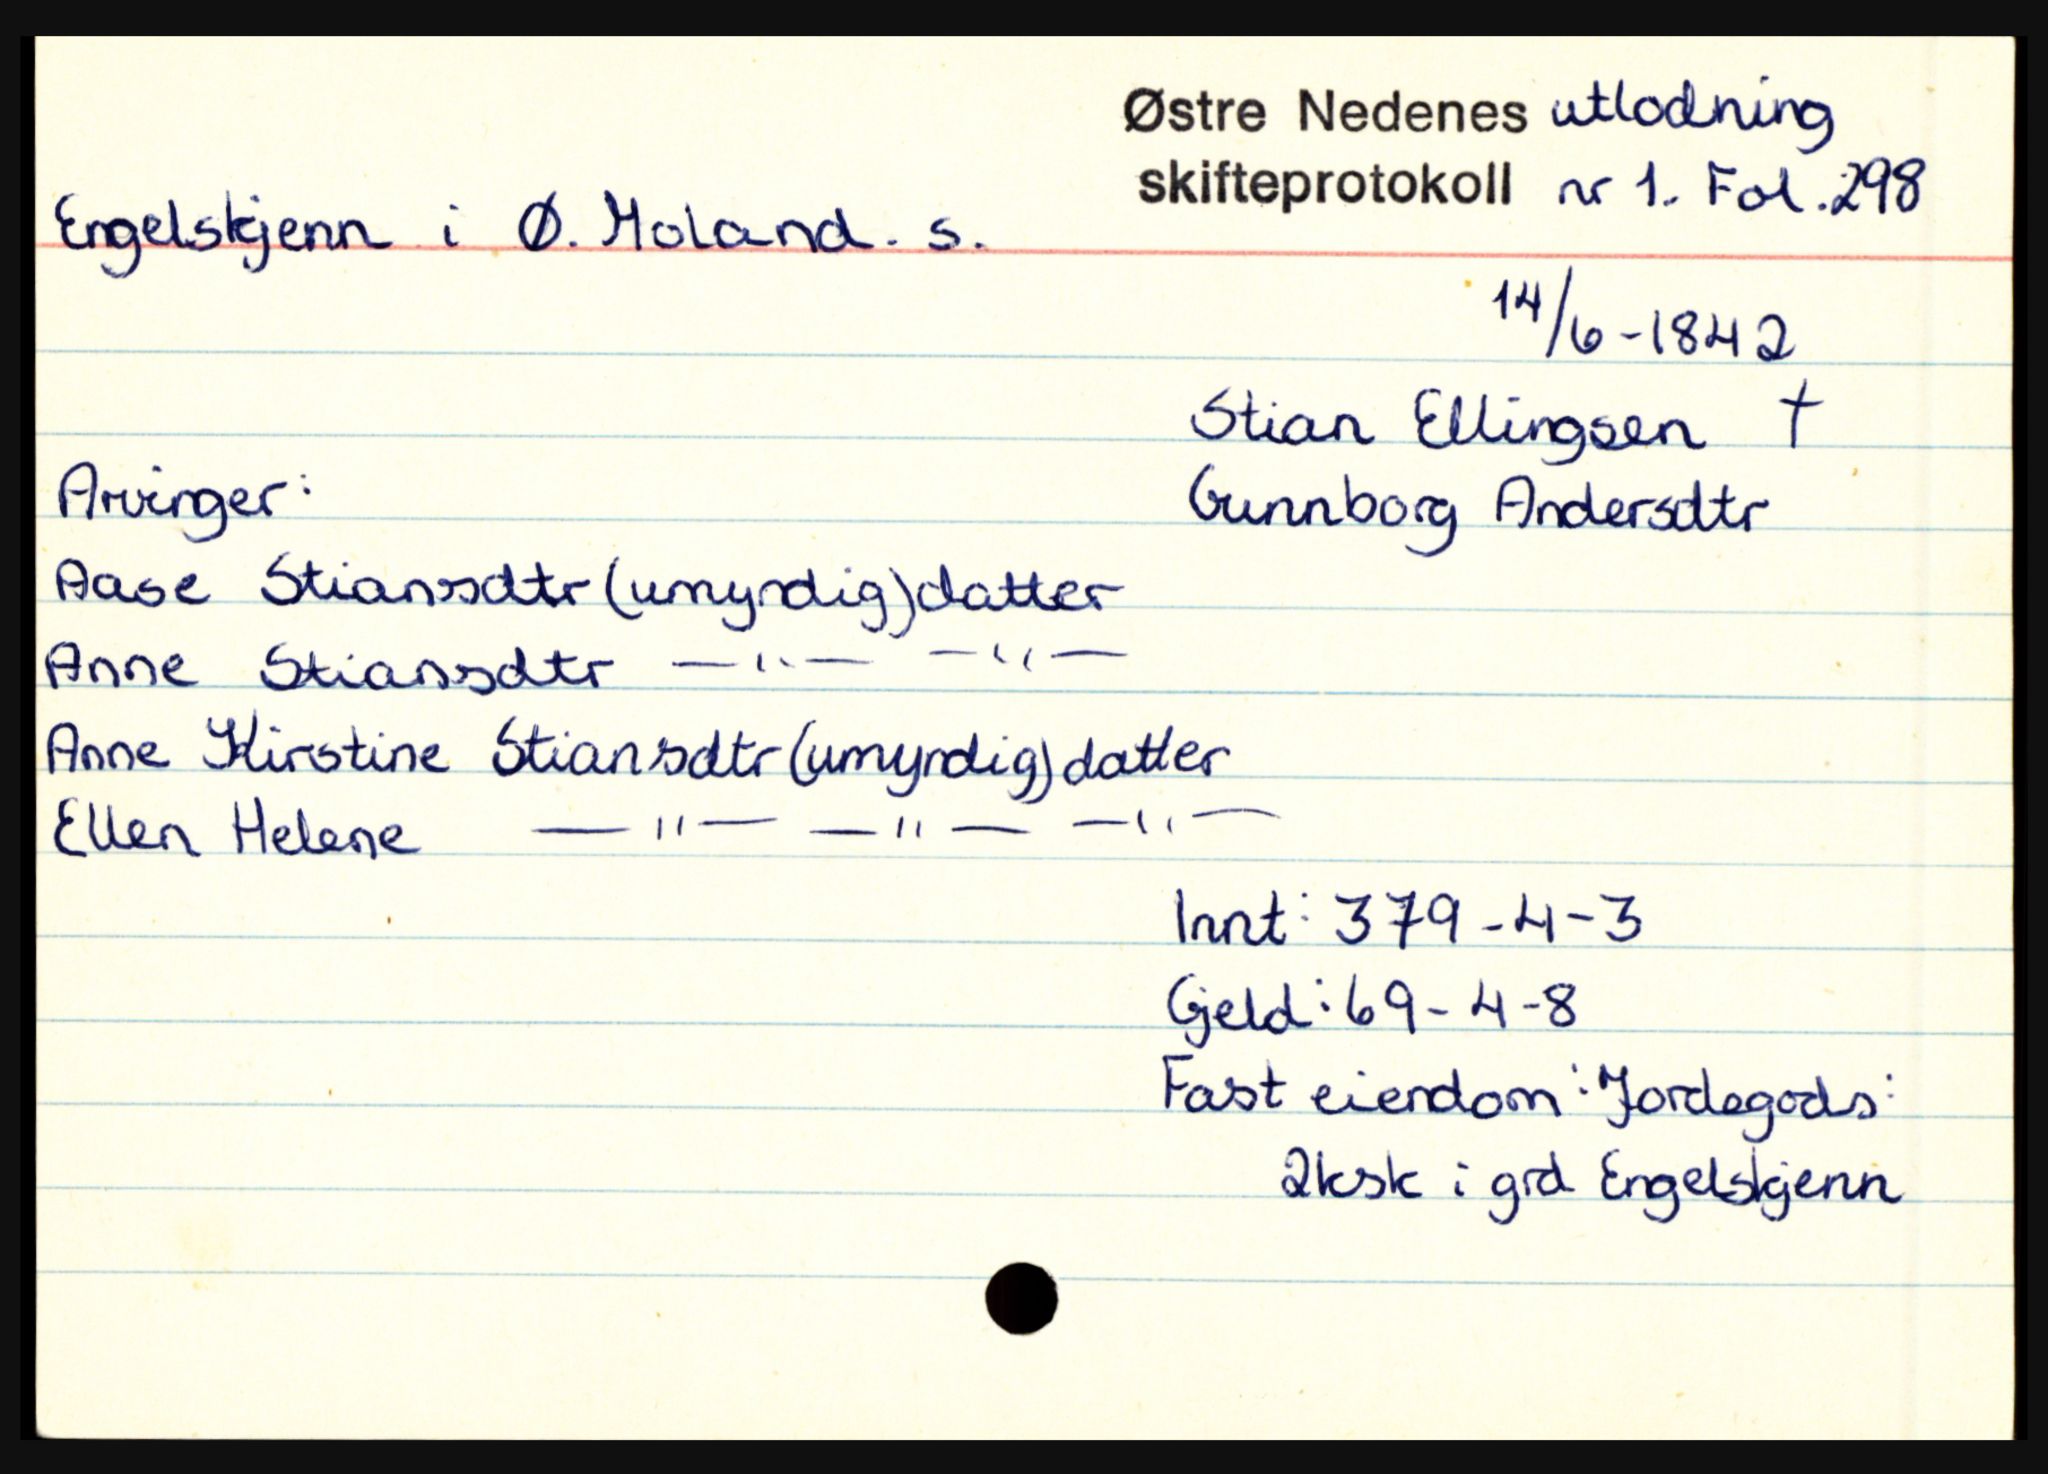 Østre Nedenes utlodning
skifteprotokoll nr 1. Fol. 298
Engelskjenn i Ø. Moland. s.
14/6-1842
Stian Ellingsen †
Arvinger:
Gunnborg Andersdtr
Aase Stiansdtr (umyndig) datter
Anne Stiansdtr —"— —"—
Anne Kirstine Stiansdtr (umyndig) datter
Ellen Helene —"— —"— —"—
Innt: 379-4-3
Gjeld: 69-4-8
Fast eiendom: Jordegods:
2ksk i grd Engelskjenn